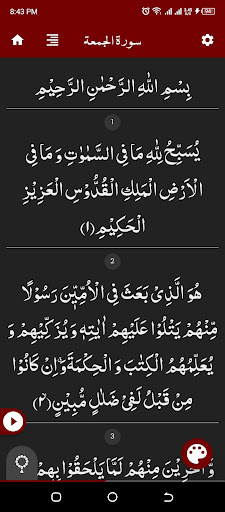 8:43 PM
سورة الجمعة
بِسْمِ اللهِ الرَّحْمٰنِ الرَّحِيْمِ
1
يُسَبِّحُ لِلّٰهِ مَا فِى السَّمٰوٰتِ وَ مَا فِى
الْاَرْضِ الْمَلِكِ الْقُدُّوْسِ الْعَزِيْزِ
الْحَكِيْمِ ﴿۱﴾
2
هُوَ الَّذِىْ بَعَثَ فِى الْاُمِّيّٖنَ رَسُوْلًا
مِّنْهُمْ يَتْلُوْا عَلَيْهِمْ اٰيٰتِهٖ وَ يُزَكِّيْهِمْ وَ
يُعَلِّمُهُمُ الْكِتٰبَ وَ الْحِكْمَةَ ۗ وَ اِنْ كَانُوْا
مِنْ قَبْلُ لَفِىْ ضَلٰلٍ مُّبِيْنٍ ﴿۲﴾
3
وَّ اٰخَرِيْنَ مِنْهُمْ لَمَّا يَلْحَقُوْا بِهِمْ